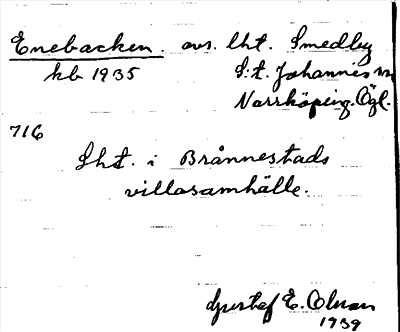 Enebacken. avs. lht. Smedby
kb 1935 S:t. Johannes
Norrköping. Ögl.
716
Lht. i Brånnestads
villasamhälle.
Gustaf E. Olman
1939